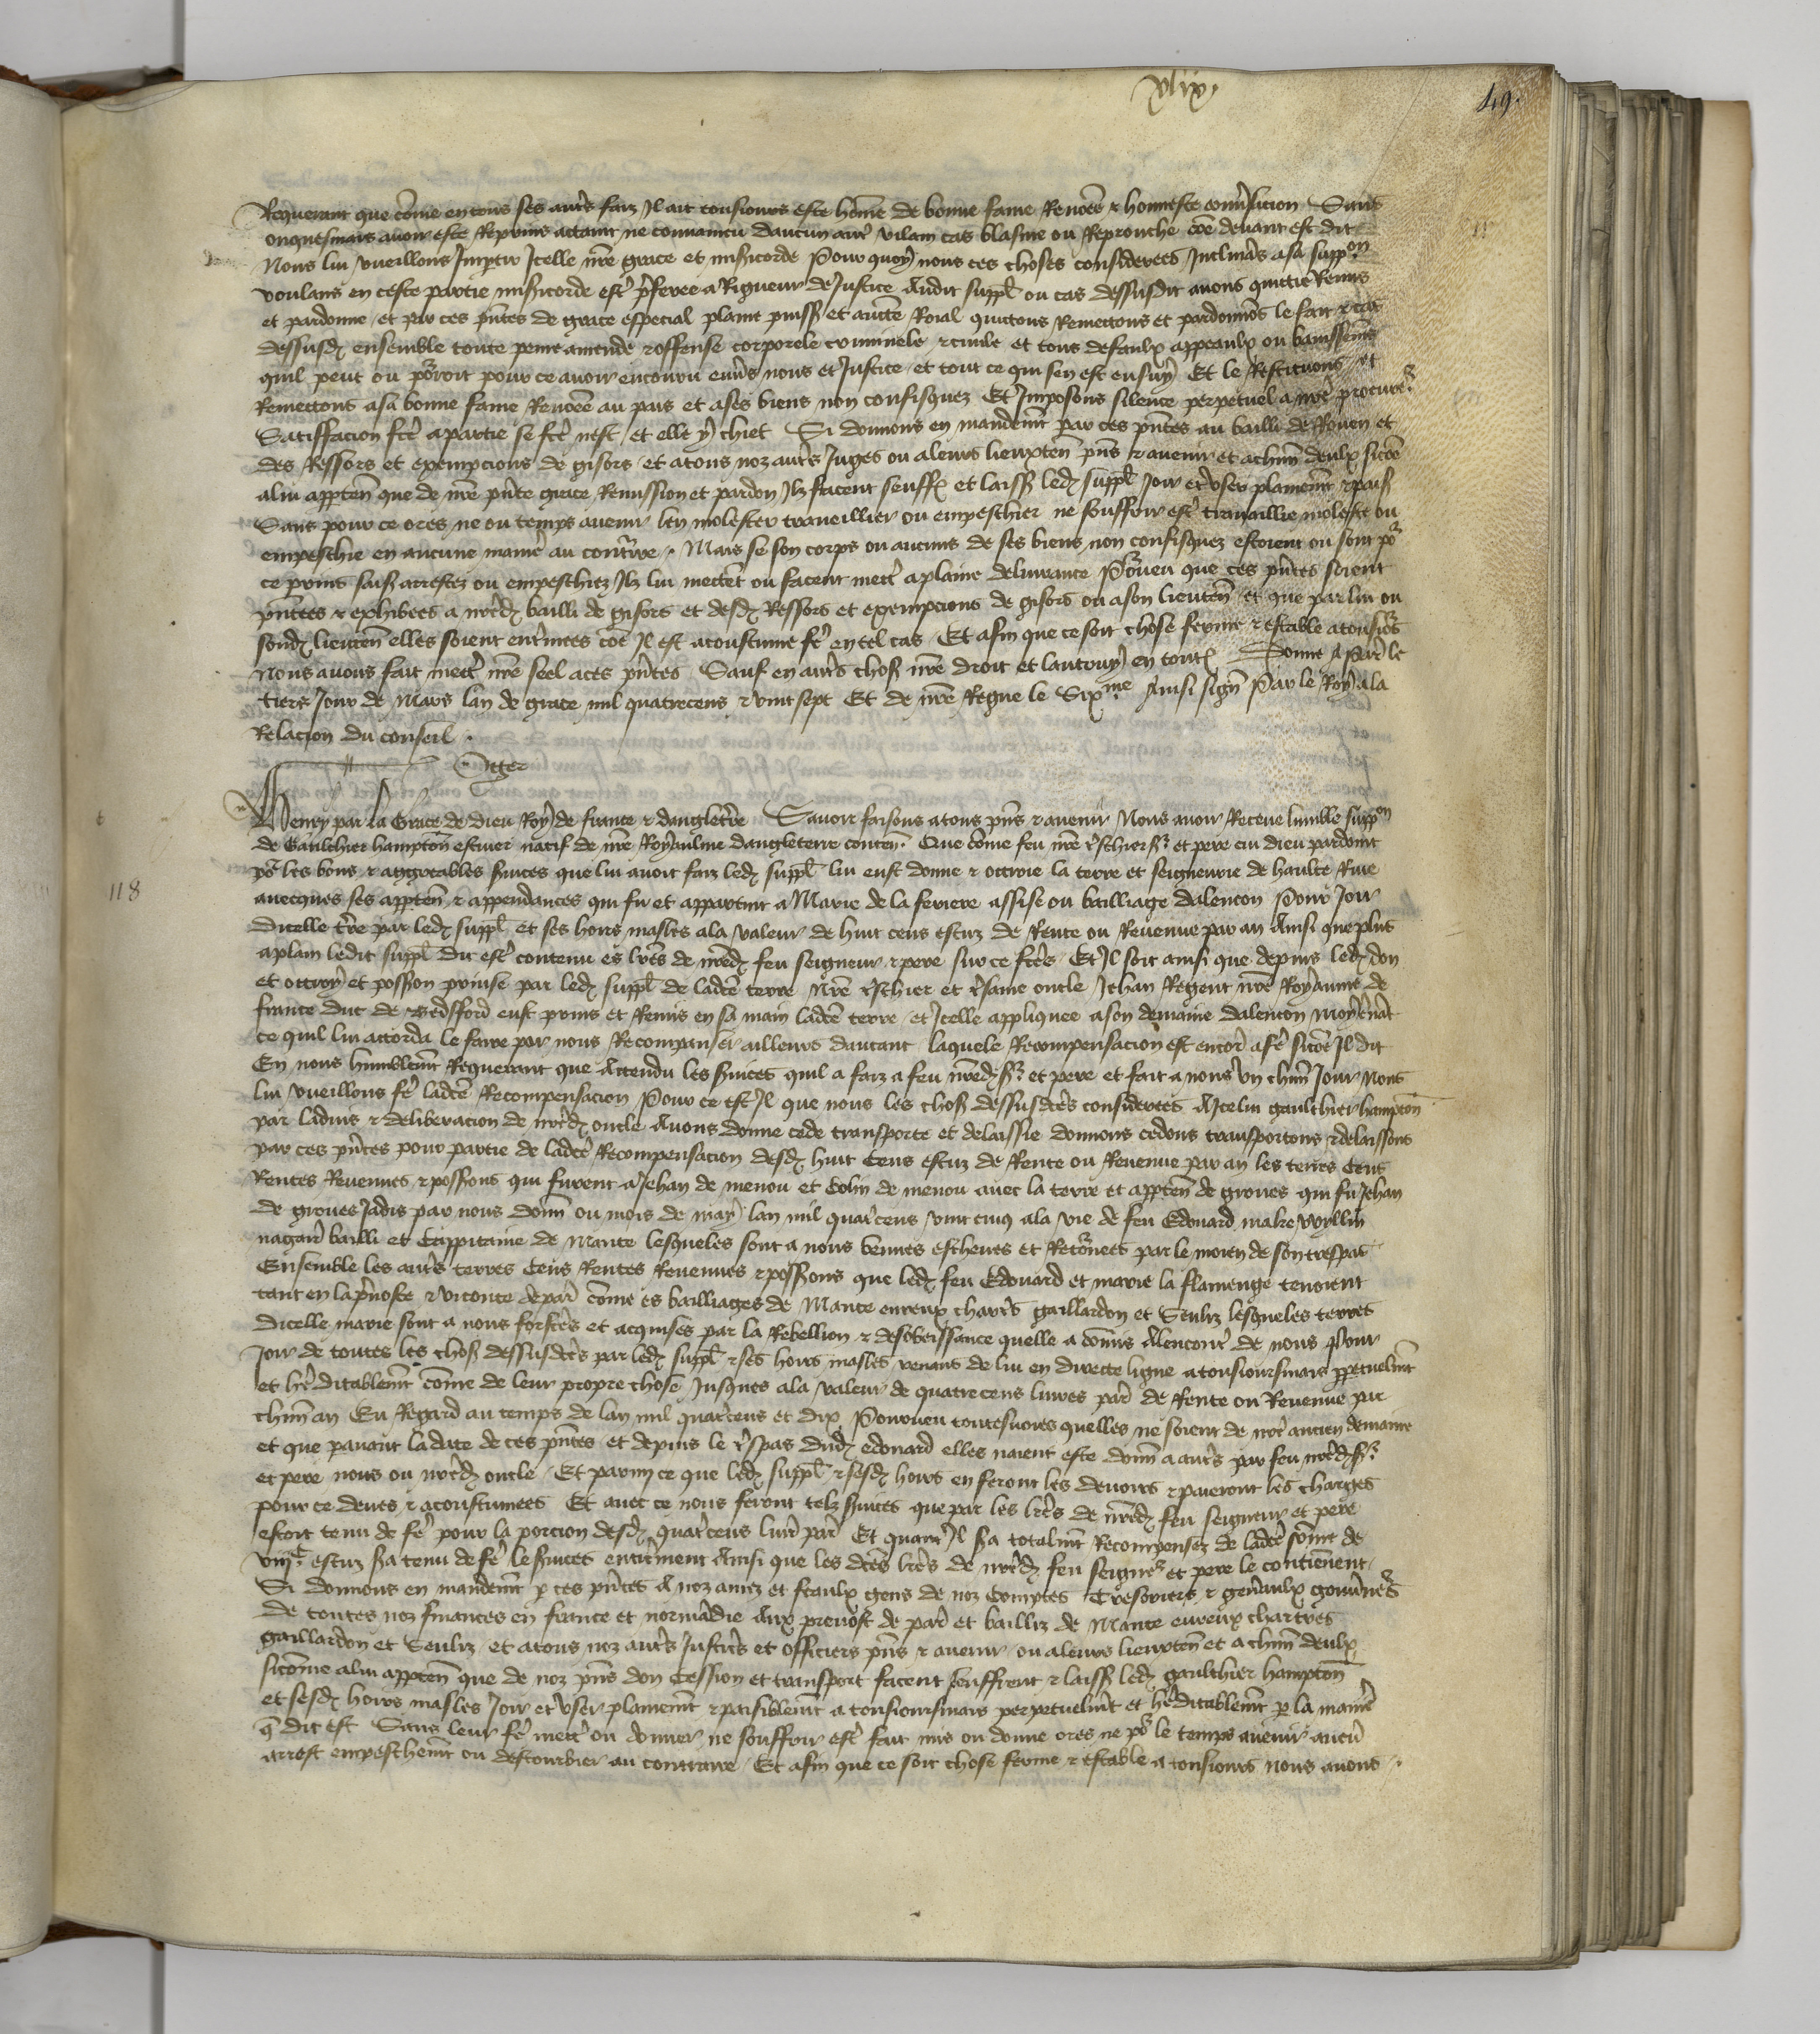 xlix.
49.
Requerant que cõme en tous ses autr̃s faiz Il ait tousiours este hõme de bonne fame Renõee & honneste conũsacion Sans
onquesmais auoir este Reprins attaint ne conuaincu daucun autr̃ vilain cas blasme ou Reprouche cõe deuant est dit
Nous lui vueillons Impartir Icelle nr̃e grace et misicorde Pour quoy nous ces choses considerees Inclinãs a sa supp̃on
voulans en ceste partie misicorde estr̃ p̃feree a Rigueur de Justice Audit supp̃l ou cas dessusdit auons quictie Remis
et pardonne et par ces pñtes de grace especial plaine puiss̃ et auctẽ Roial quictons Remectons et pardonnõs le fait & cas
dessusd̃ ensemble toute peine amende & offense corporele criminele & ciuile et tous defaulx appeaulx ou banissemẽs
quil peut ou põroit pour ce auoir encouru enũs nous et Justice et tout ce qui sen est ensuy Et le Restituons et
Remectons a sa bonne fame Renõee au pais et a ses biens non confisquez Et Imposons silence perpetuel a nr̃e procur̃
Satisfacion fc̃e a partie se fc̃e nest et elle y chiet Si donnons en mandemẽt par ces pñtes au bailli de Rouen et
des Ressors et exempcions de gisors et a tous noz autr̃s Juges ou a leurs lieuxten̄ pñs & auenir et a chũn deulx sicõe
a lui apptẽn que de nr̃e pñte grace Remission et pardon Ilz facent seuffr̃ et laiss̃ led̃ supp̃l Joir et vser plainemẽt & paiſ
Sans pour ce ores ne ou temps auenir len molester traueillier ou empeschier ne souffrir estr̃ trauaillie moleste ou
empeschie en aucune manier̃ au contrãire. Mais se son corps ou aucuns de ses biens non confisquez estoient ou sont põ
ce prins saisiz arrestez ou empeschiez Ilz lui mectẽt ou facent mectr̃ a plaine deliurance Põrueu que ces pñtes soient
pñtees & exhibees a nr̃ed̃ bailli de gisors et desd̃ Ressors et exempcions de gisors ou a son lieuten̄ et que par lui ou
sond̃ lieuten̄ elles soient enterinees cõe Il est acoustume fr̃e en tel cas Et afin que ce soit chose ferme & estable a tousiõs
Nous auons fait mectr̃ nr̃e seel a ces pñtes Sauf en autr̃s chos̃ nr̃e droit et lautruy en toutes Donne A Par̃ le
tiers Jour de Mars lan de grace mil quatrecens & vint sept Et de nr̃e Regne le Sixme Ainsi signe Par le Roy a la
Relacion du conseil.
Oger
118
Henry par la Grace de dieu Roy de france & dangleterre Sauoir faisons a tous pñs & auenir Nous auoir Receue lumble supp̃on
de Gaulthier hampton̄ escuier natif de nr̃e Royaulme dangleterre conten̄. Que cõme feu nr̃e tr̃schier sr̃ et pere cui dieu pardoint
põ les bons & aggreables seruices que lui auoit faiz led̃ supp̃l lui eust donne & octroie la terre et seigneurie de haulte Riue
auecques ses apptẽn & appendances qui fu et appartint a Marie de la feriere assise ou bailliage dalencon Pour Joir
dicelle tr̃re par led̃ supp̃l et ses hoirs masles a la valeur de huit cens escuz de Rente ou Reuenue par an Ainsi que plus
a plain ledit supp̃l dit estr̃ contenu es lr̃es de nr̃ed̃ feu seigneur & pere sur ce fc̃es Et Il soit ainsi que depuis led̃ don
et octroy et possion prinse par led̃ supp̃l de ladc̃e terre Nr̃e tr̃schier et tr̃same oncle Jehan Regent nr̃e Royaume de
france duc de Bedfford eust prins et Remis en sa main ladc̃e terre et Icelle appliquee a son demaine dalencon moyẽnãt
ce quil lui accorda le faire par nous Recompanser ailleurs dautant laquele Recompensacion est encor̃ a fr̃e sicõe Il dit
En nous humblemẽt Requerant que Attendu les seruices quil a faiz a feu nr̃ed̃ sr̃ et pere et fait a nous vn chũn Jour Nous
lui vueillons fr̃e ladc̃e Recompensacion Pour ce est Il que nous les chos̃ dessusdc̃es considerees A Icelui gaulthier hampton̄
par laduis & deliberacion de nr̃ed̃ oncle Auons donne cede transporte et delaissie donnons cedons transportons & delaissons
par ces pñtes pour partie de ladc̃e Recompensacion desd̃ huit Cens escuz de Rente ou Reuenue par an les terres Cens
Rentes Reuenues & possions qui furent a Jehan de menou et Colin de menou auec la terre et apptẽn de groues qui fu Jehan
de groues Jadis par nous donn̄ ou mois de may lan mil quatr̃cens vint cinq a la vie de feu Edouard make wyllm̄
nagair̃ bailli et Cappitaine de Mante lesqueles sont a nous venues escheues et Retõnees par le moien de son trespas
Ensemble les autr̃s terres Cens Rentes Reuenues & possions que led̃ feu Edouard et marie la flamenge tenoient
tant en la p̃uoste & viconte de par̃ cõme es bailliages de Mante eureux chartr̃s gaillardon et Senliz lesqueles terres
dicelle marie sont a nous forfaictes et acquises par la Rebellion & desobeissance quelle a cõmis Alencontr̃ de nous Pour
Joir de toutes les chos̃ dessusdc̃es par led̃ supp̃l & ses hoirs masles venans de lui en directe ligne a tousioursmais ppetuelmẽt
et hr̃editablemẽt cõme de leur propre chose Jusques a la valeur de quatrecens liures par̃ de Rente ou Reuenue par
chũn an Eu Regard au temps de lan mil quatr̃cens et dix Pourueu toutesuoies quelles ne soient de nr̃e ancien demaine
et que pauant la date de ces pñtes et depuis le tr̃spas dud̃ edouard elles naient este donn̄ a autr̃s par feu nr̃ed̃ sr̃
et pere nous ou nr̃ed̃ oncle Et parmy ce que led̃ supp̃l & sesd̃ hoirs en feront les deuoirs & paieront les charges
pour ce deues & acoustumees Et auec ce nous feront telz seruices que par les lr̃es de nr̃ed̃ feu seigneur et pere
estoit tenu de fr̃e pour la porcion desd̃ quatr̃cens liur̃ par̃ Et quant Il sera totalmẽt Recompensez de ladc̃e sõme de
viijc escuz sera tenu de fr̃e le seruices entierement Ainsi que les dc̃es lr̃es de nr̃ed̃ feu seigñr et pere le contiẽnent
Si donnons en mandemẽt p ces pñtes A noz amez et feaulx gens de noz Comptes Tresoriers & gen̄aulx gouũneurs
de toutes noz finances en france et normãdie Aux preuost de par̃ et bailliz de Mante eureux chartres
gaillardon et Senliz et a tous noz autr̃s Justic̃s et officiers pñs & auenir ou a leurs lieuxten̄ et a chũn deulx
sicõme a lui apptẽn que de noz pñs don Cession et transport facent seuffrent & laiss̃ led̃ gaulthier hampton̄
et sesd̃ hoirs masles Joir et vser plainemẽt & paisiblemẽt a tousioursmais perpetuelmẽt et hr̃editablemẽt p la manier̃
q̃ dit est Sans leur fr̃e mectr̃ ou donner ne souffrir estr̃ fait mis ou donne ores ne põ le temps auenir aucũ
arrest empeschemẽt ou destourbier au contraire Et afin que ce soit chose ferme & estable a tousiours nous auons